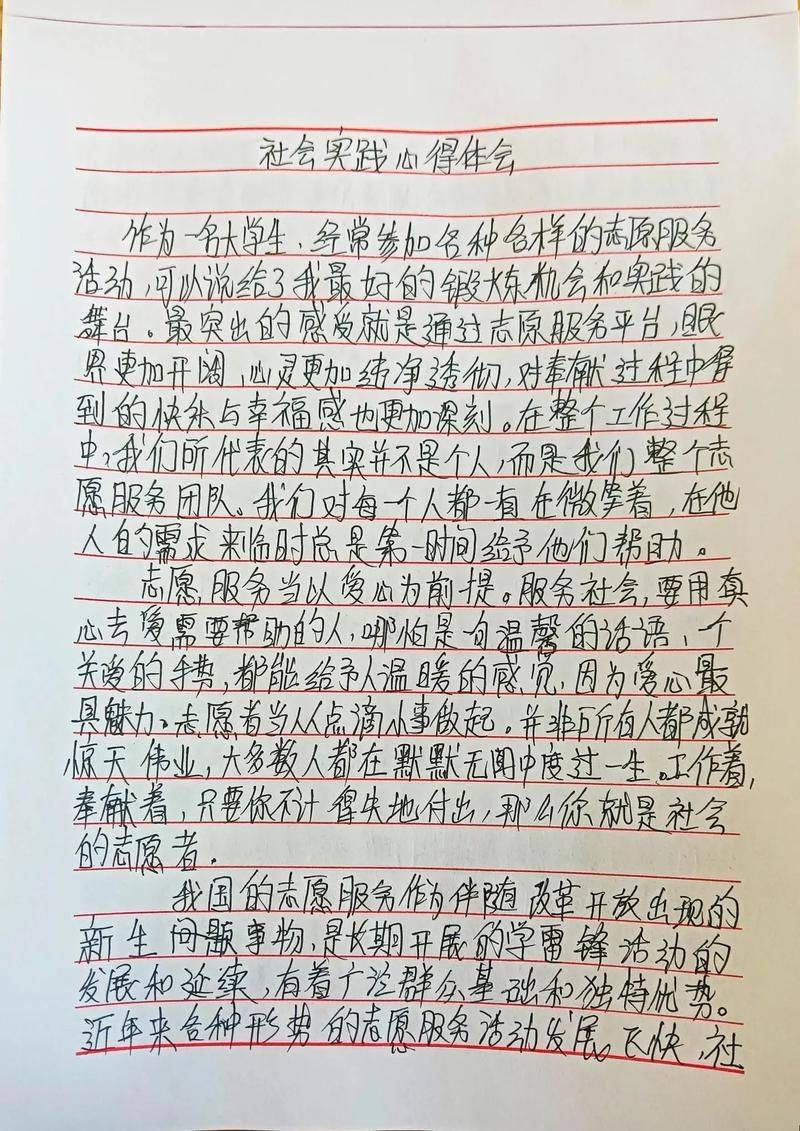 社会实践心得体会
作为一名大学生，经常参加各种各样的志愿服务
活动，可以说给了我最好的锻炼机会和实践的
舞台。最突出的感受就是通过志愿服务平台，眼
界更加开阔，心灵更加纯净透彻，对奉献过程中得
到的快乐与幸福感也更加深刻。在整个工作过程
中，我们所代表的其实并不是个人，而是我们整个志
愿服务团队。我们对每一个人都一直在微笑着，在他
人的需求来临时总是第一时间给予他们帮助。
志愿服务当以爱心为前提。服务社会，要用真
心去爱需要帮助的人，哪怕是句温馨的话语、一个
关爱的手势，都能给予人温暖的感觉，因为爱心最
具魅力。志愿者当从点滴小事做起。并非所有人都成就
惊天伟业，大多数人都在默默无闻中度过一生。工作着，
奉献着，只要你不计得失地付出，那么你就是社会
的志愿者。
我国的志愿服务作为伴随改革开放出现的
新生事物，是长期开展的学雷锋活动的
发展和延续，有着广泛群众基础和独特优势。
近年来各种形势的志愿服务活动发展飞快，社